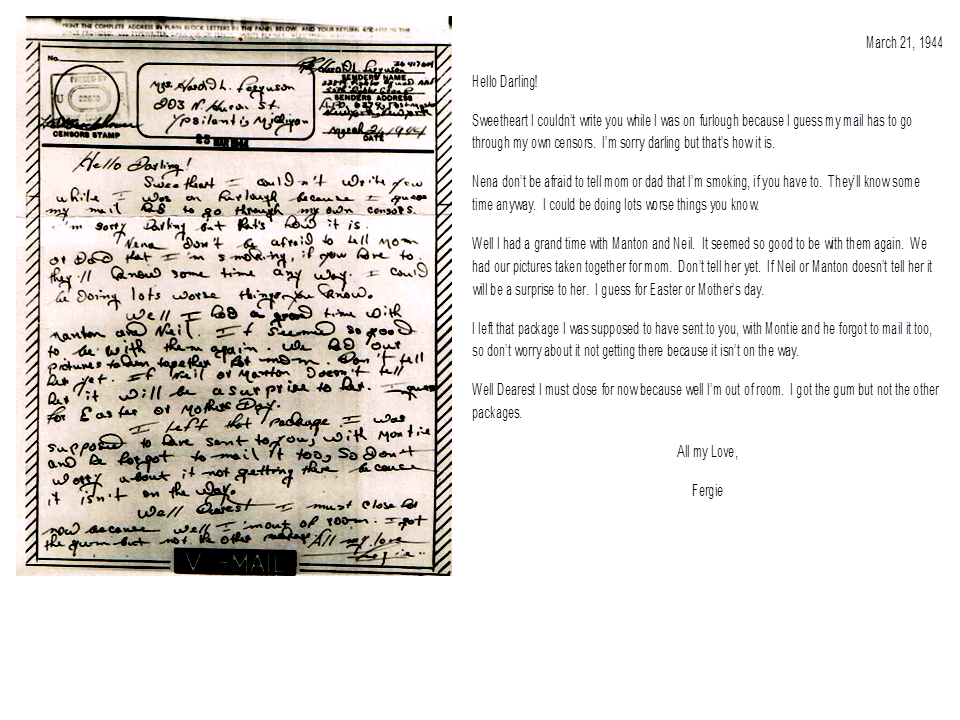 PRINT THE COMPLETE ADDRESS IN PLAIN BLOCK LETTERS IN THE PANEL BELOW, AND YOUR RETURN ADDRESS IN THE
No.
CENSOR'S STAMP
Mrs. Harold L. Ferguson
203 N. Huron St.
Ypsilanti Michigan
Harold L. Ferguson
SENDER'S NAME
SENDER'S ADDRESS
DATE
Hello Darling!
Sweetheart I couldn't write you
while I was on furlough because I guess
my mail has to go through my own censors.
I'm sorry Darling but that's how it is.
Nena don't be afraid to tell mom
or Dad that I'm smoking, if you have to.
they'll know some time any way. I could
be doing lots worse things you know.
Well I had a grand time with
Manton and Neil. It seemed so good
to be with them again. We had our
pictures taken together for mom. Don't tell
her yet. If Neil or Manton doesn't tell
her it will be a surprise to her. I guess
for Easter or Mothers Day.
I left that package I was
supposed to have sent to you, with Montie
and he forgot to mail it too, so don't
worry about it not getting there because
it isn't on the way.
Well Dearest I must close for
now because well I'm out of room. I got
the gum but not the other packages
All my love
Fergie
V-MAIL
March 21, 1944
Hello Darling!
Sweetheart I couldn't write you while I was on furlough because I guess my mail has to go
through my own censors. I'm sorry darling but that's how it is.
Nena don't be afraid to tell mom or dad that I'm smoking, if you have to. They'll know some
time anyway. I could be doing lots worse things you know.
Well I had a grand time with Manton and Neil. It seemed so good to be with them again. We
had our pictures taken together for mom. Don't tell her yet. If Neil or Manton doesn't tell her it
will be a surprise to her. I guess for Easter or Mother's day.
I left that package I was supposed to have sent to you, with Montie and he forgot to mail it too,
so don't worry about it not getting there because it isn't on the way.
Well Dearest I must close for now because well I'm out of room. I got the gum but not the other
packages.
All my Love,
Fergie